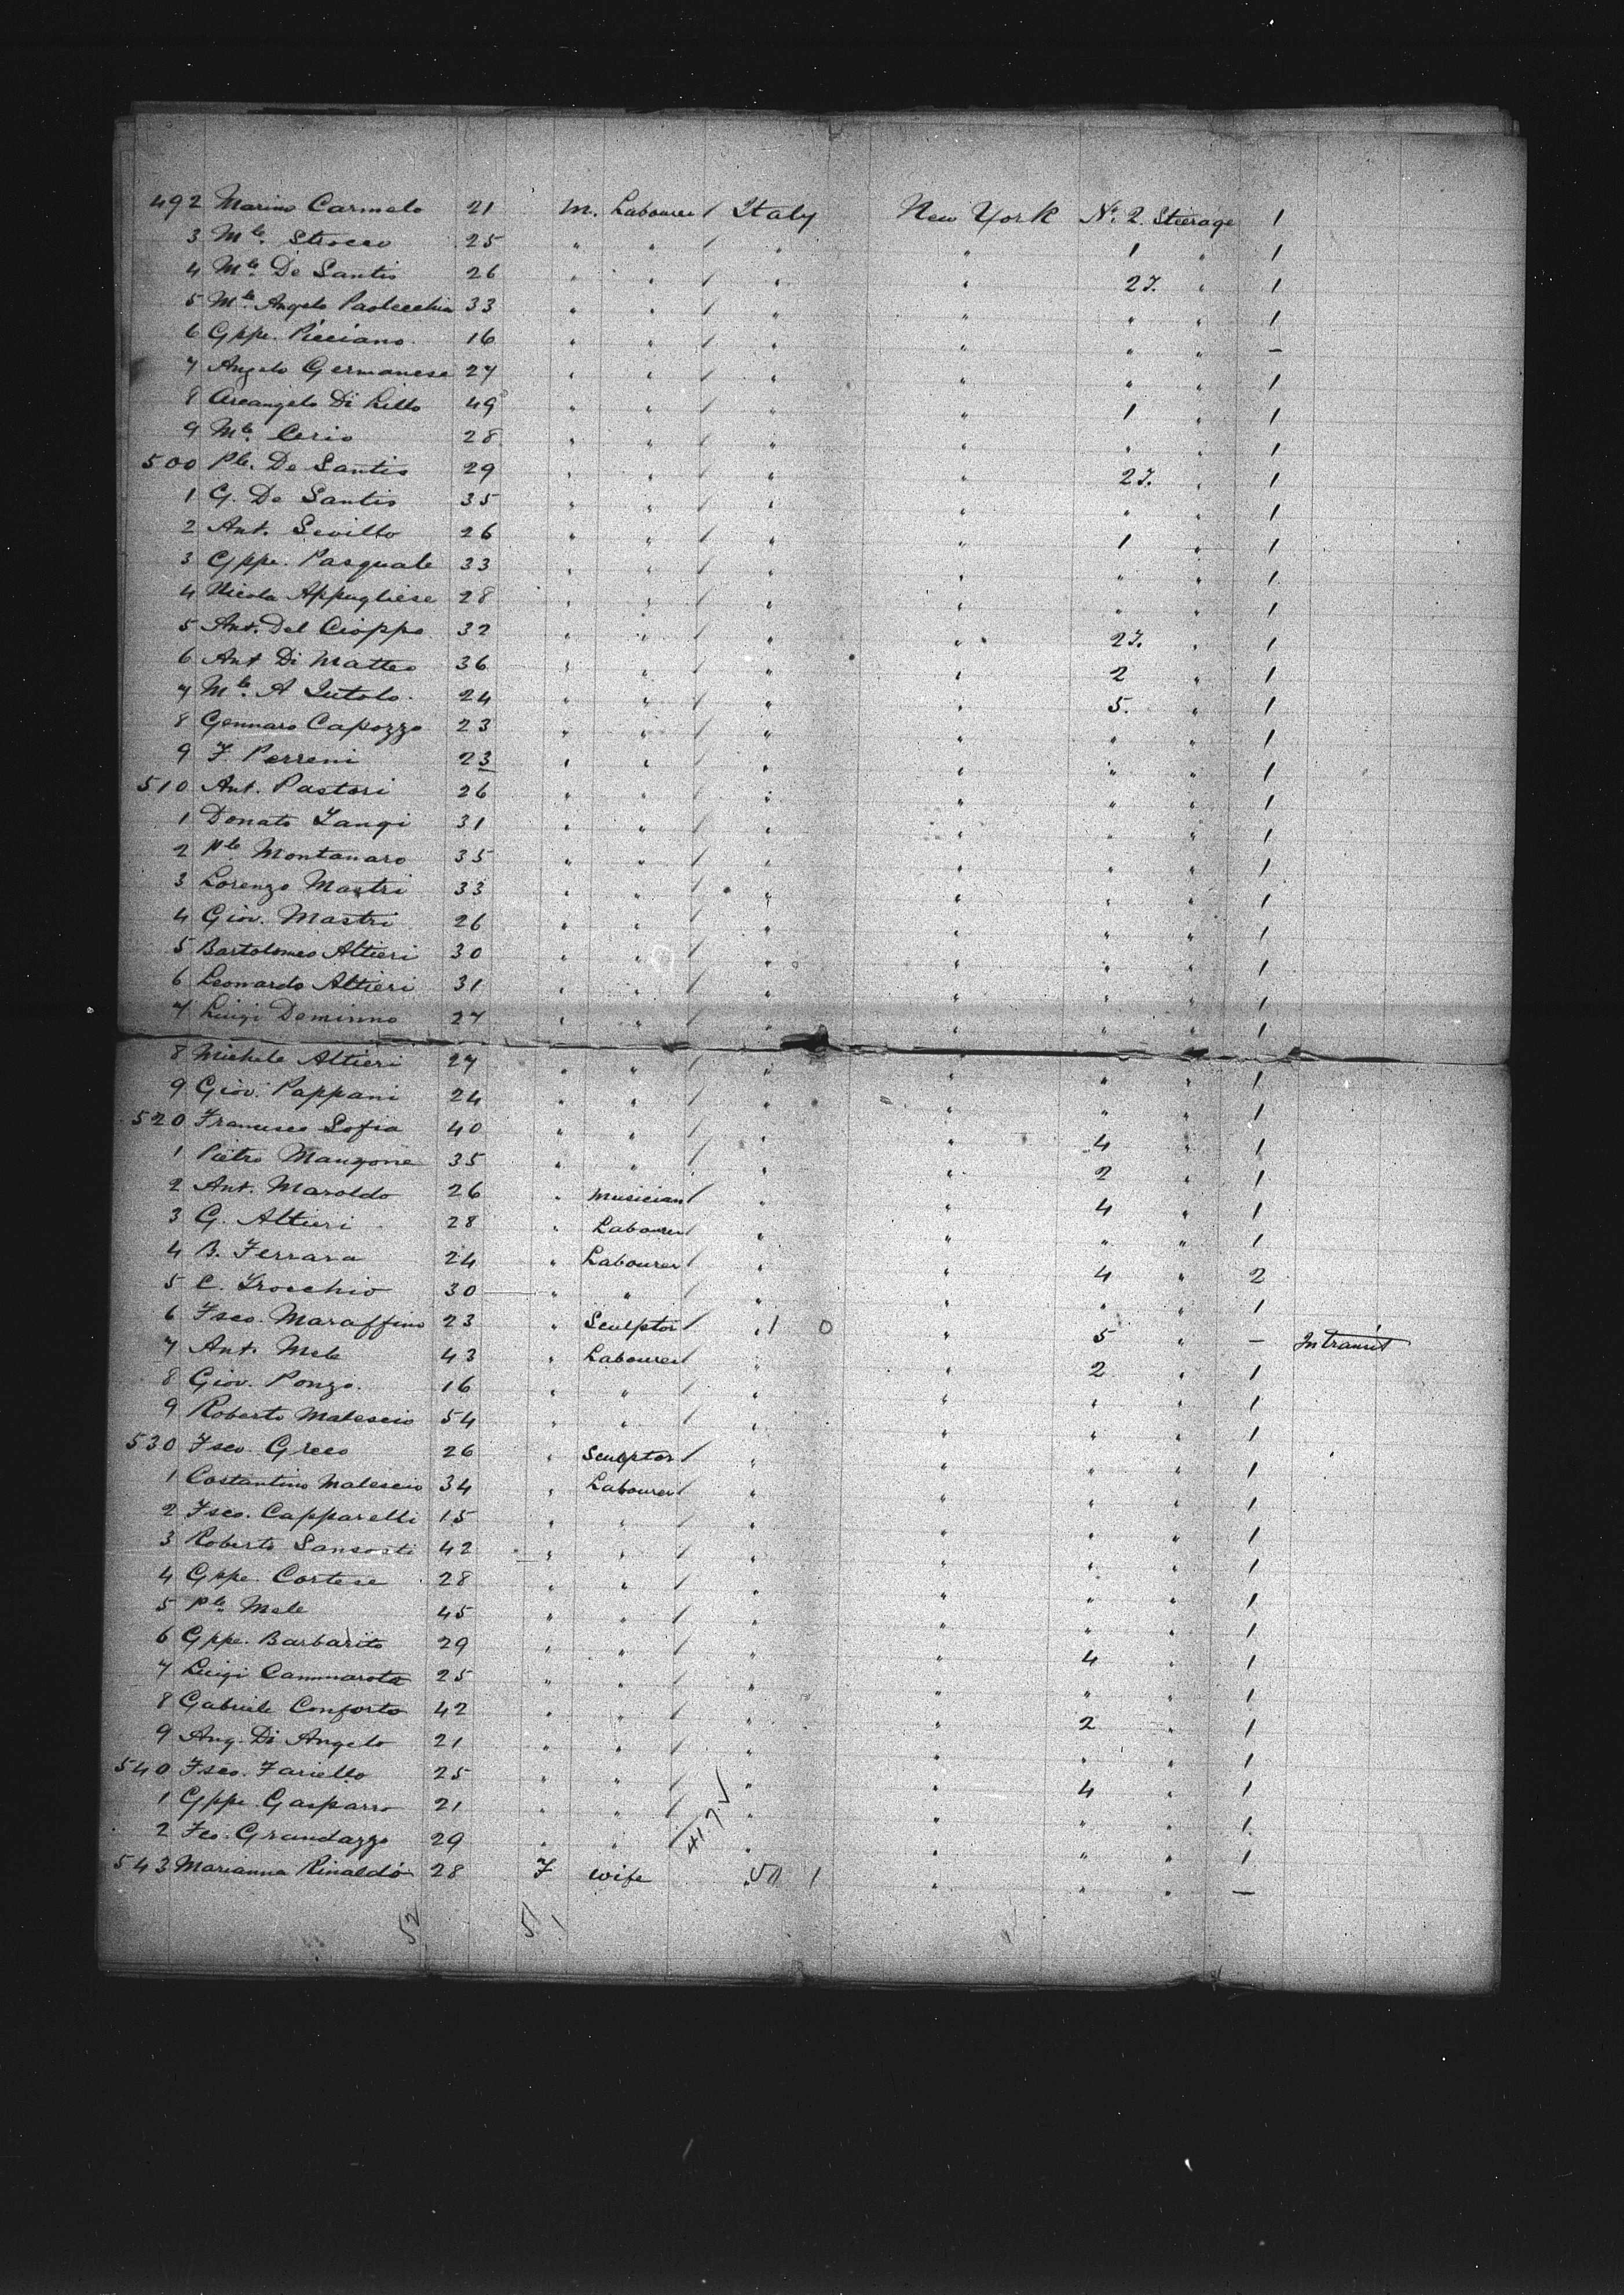 492 Marino Carmelo 21 M. Labourer / Italy New York No. 2 Steerage 1
3 Mle. Strocco 25 " " / " " 1 " 1
4 Mle. De Santis 26 " " / " " 27. " 1
5 Mle. Angelo 33 " " / " " " " 1
6 Gppe. Picciano 16 " " / " " " " —
7 Angelo Germanese 27 " " / " " " " 1
8 Arcangelo Di Lillo 49 " " / " " 1 " 1
9 Mle. Cerio 28 " " / " " " " 1
500 Ple. De Santis 29 " " / " " 27. " 1
1 G. De Santis 35 " " / " " " " 1
2 Ant. Sevillo 26 " " / " " 1 " 1
3 Gppe. Pasquale 33 " " / " " " " 1
4 Nicola Appugliese 28 " " / " " " " 1
5 Ant. Del Cioppo 32 " " / " " 27. " 1
6 Ant Di Matteo 36 " " / " " 2 " 1
7 Mle. A Iutolo 24 " " / " " 5. " 1
8 Gennaro Capozzo 23 " " / " " " " 1
9 F. Perreni 23 " " / " " " " 1
510 Ant. Pastori 26 " " / " " " " 1
1 Donato Zangi 31 " " / " " " " 1
2 Ple. Montanaro 35 " " / " " " " 1
3 Lorenzo Mastri 33 " " / " " " " 1
4 Giov. Mastri 26 " " / " " " " 1
5 Bartolomeo Altieri 30 " " / " " " " 1
6 Leonardo Altieri 31 " " / " " " " 1
7 Luigi Deminno 27 " " / " " " " 1
8 Michele Altieri 27 " " / " " " " 1
9 Giov. Pappani 24 " " / " " " " 1
520 Francesco Sofia 40 " " / " " 4 " 1
1 Pietro Mangone 35 " " / " " 2 " 1
2 Ant. Maroldo 26 " Musician / " " 4 " 1
3 G. Altieri 28 " Labourer / " " " " 1
4 B. Ferrara 24 " Labourer / " " 4 " 2
5 C. Trocchio 30 " " / " " " " 1
6 Fsco. Maraffino 23 " Sculptor / " 1 0 " 5 " — In transit
7 Ant. Mele 43 " Labourer / " " 2 " 1
8 Giov. Ponzo. 16 " " / " " " " 1
9 Roberto Malescio 54 " " / " " " " 1
530 Fsco. Greco 26 " Sculptor / " " " " 1
1 Costantino Malescio 34 " Labourer / " " " " 1
2 Fsco. Capparelli 15 " " / " " " " 1
3 Roberto Sansosti 42 " " / " " " " 1
4 Gppe. Cortese 28 " " / " " " " 1
5 Ple. Mele 45 " " / " " " " 1
6 Gppe. Barbarito 29 " " / " " 4 " 1
7 Luigi Cammarota 25 " " / " " " " 1
8 Gabriele Conforto 42 " " / " " 2 " 1
9 Ang. Di Angelo 21 " " / " " " " 1
540 Fsco. Fariello 25 " " / " " 4 " 1
1 Gppe. Gasparro 21 " " / " " " " 1
2 Fco. Grandazzo 29 " " / " " " " 1
543 Marianna Rinaldo 28 F wife " 1 " " " —
52 51 1